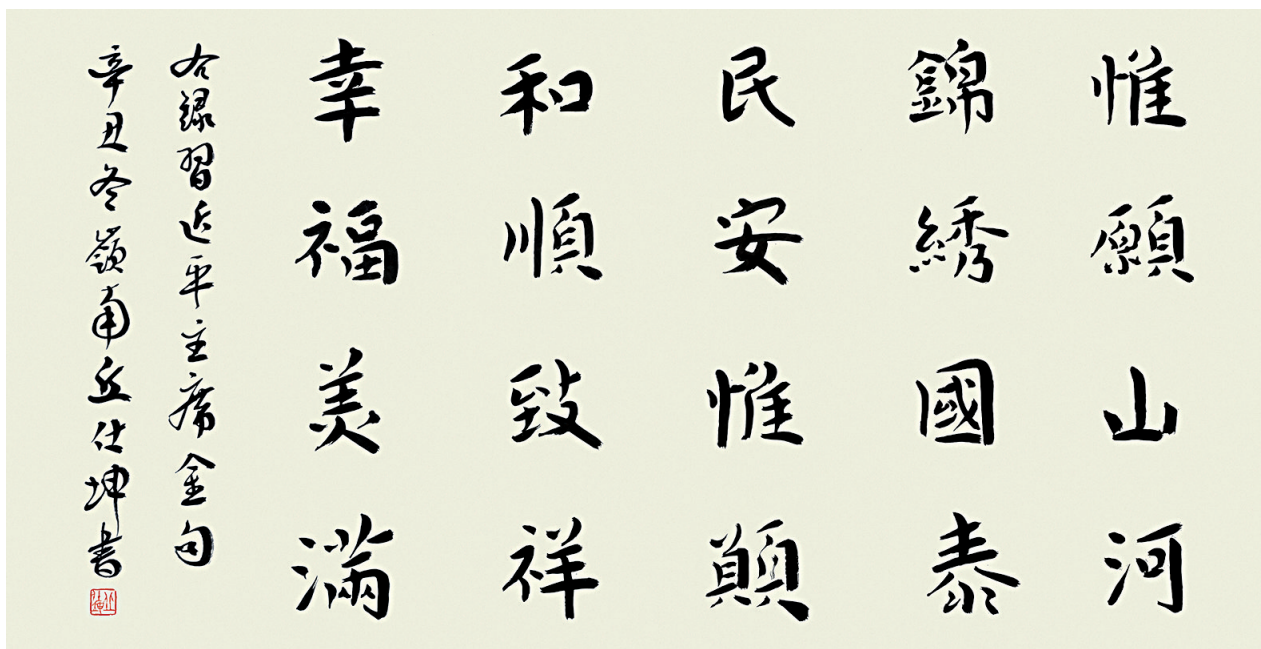 惟願山河
錦綉國泰
民安惟顚
和順致祥
幸福美滿
右録習近平主席金句
辛丑冬嶺南丘仕坤書